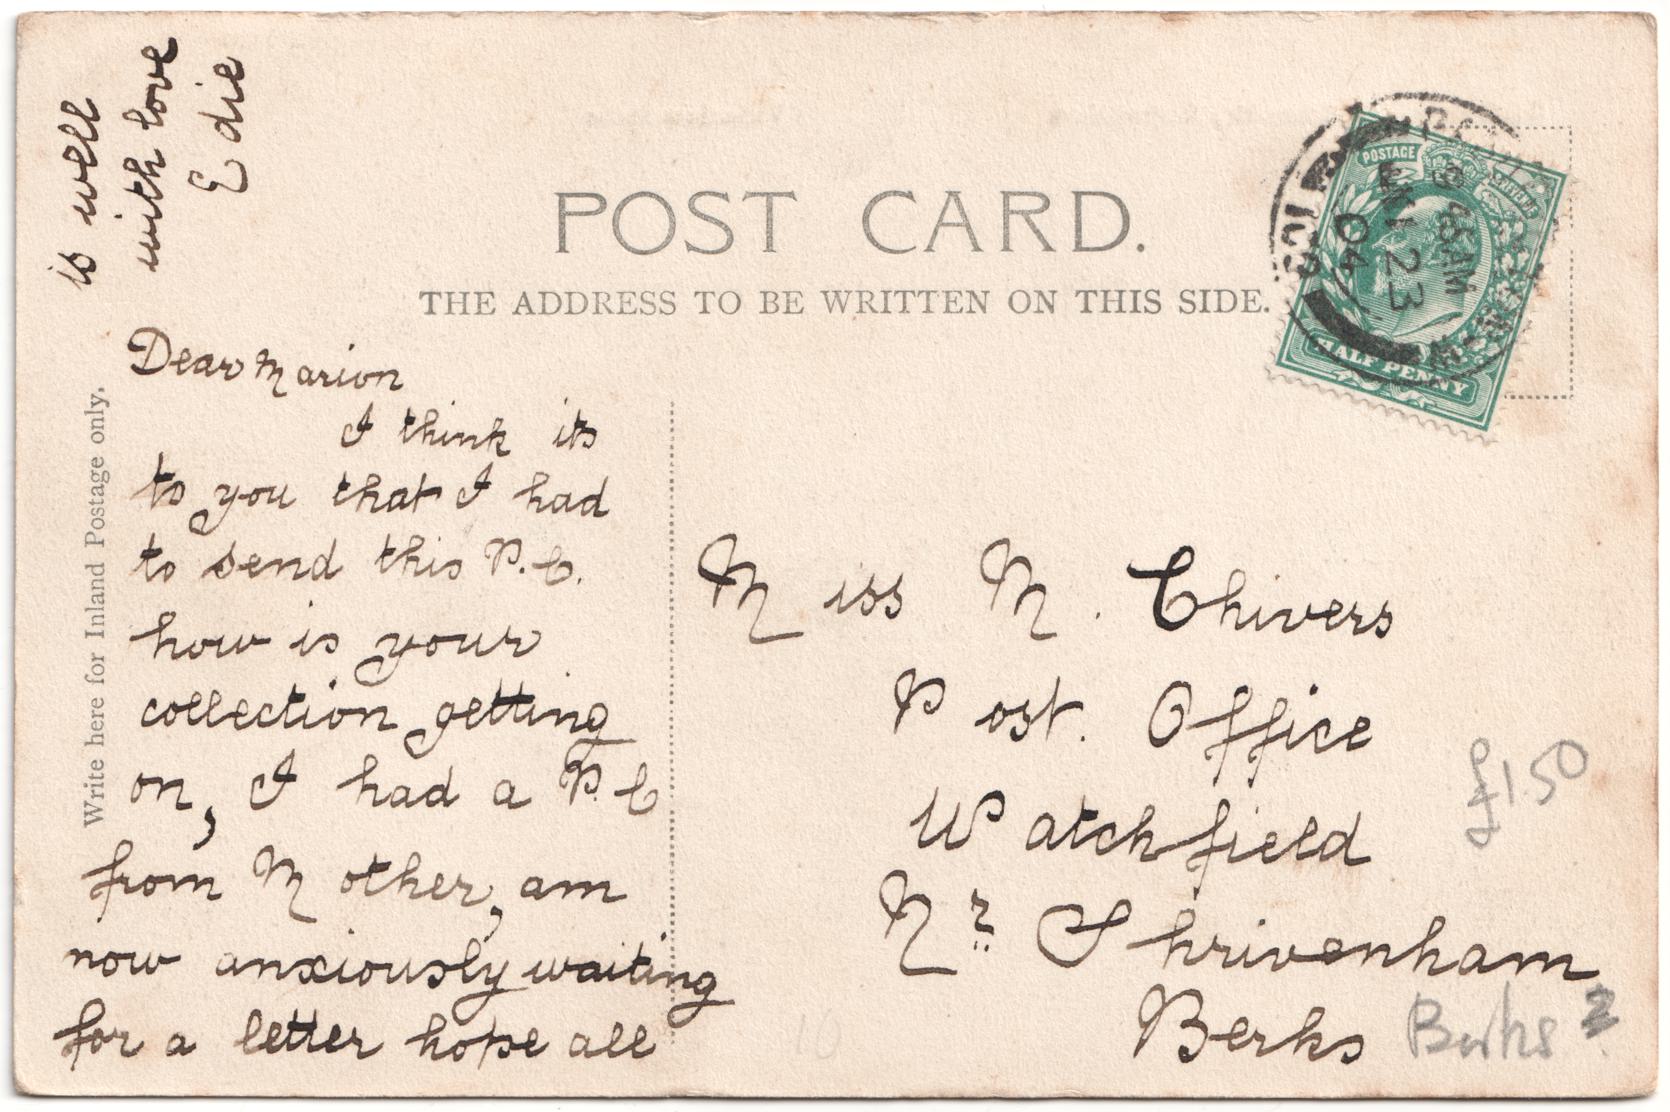 POST CARD.
THE ADDRESS TO BE WRITTEN ON THIS SIDE.
Write here for Inland Postage only.
Dear Marion
I think its
to you that I had
to send this P.C.
how is your
collection getting
on, I had a P.C
from Mother, am
now anxiously waiting
for a letter hope all
is well
with love
Edie
POSTAGE
HALF PENNY
9 45AM
23
04
Miss M. Chivers
Post. Office
Watchfield
Nr Shrivenham
Berks
£1.50
Berks
10